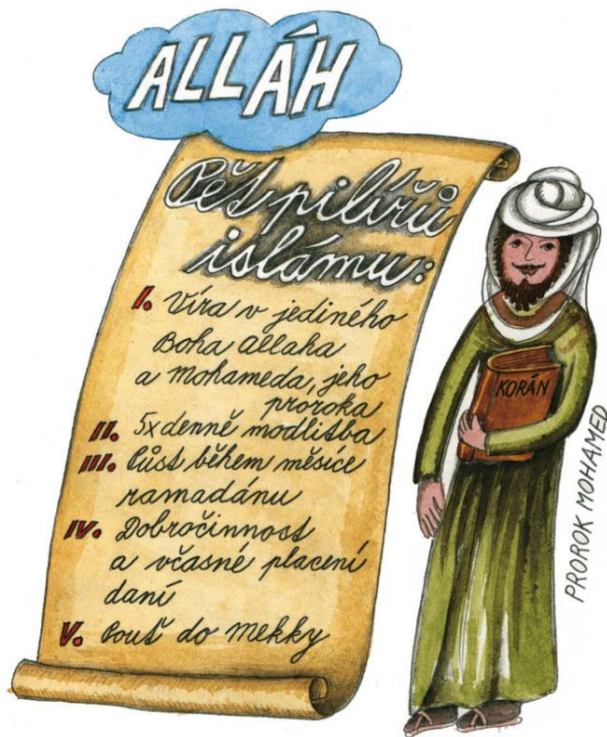 ALLÁH
Pět pilířů
islámu:
I. Víra v jediného
Boha Allaha
a Mohameda, jeho
proroka
II. 5x denně modlitba
III. Půst během měsíce
ramadánu
IV. Dobročinnost
a včasné placení
daní
V. Pouť do Mekky
KORÁN
PROROK MOHAMED